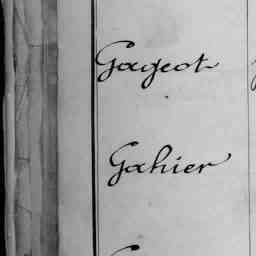 Gageot
Gahier